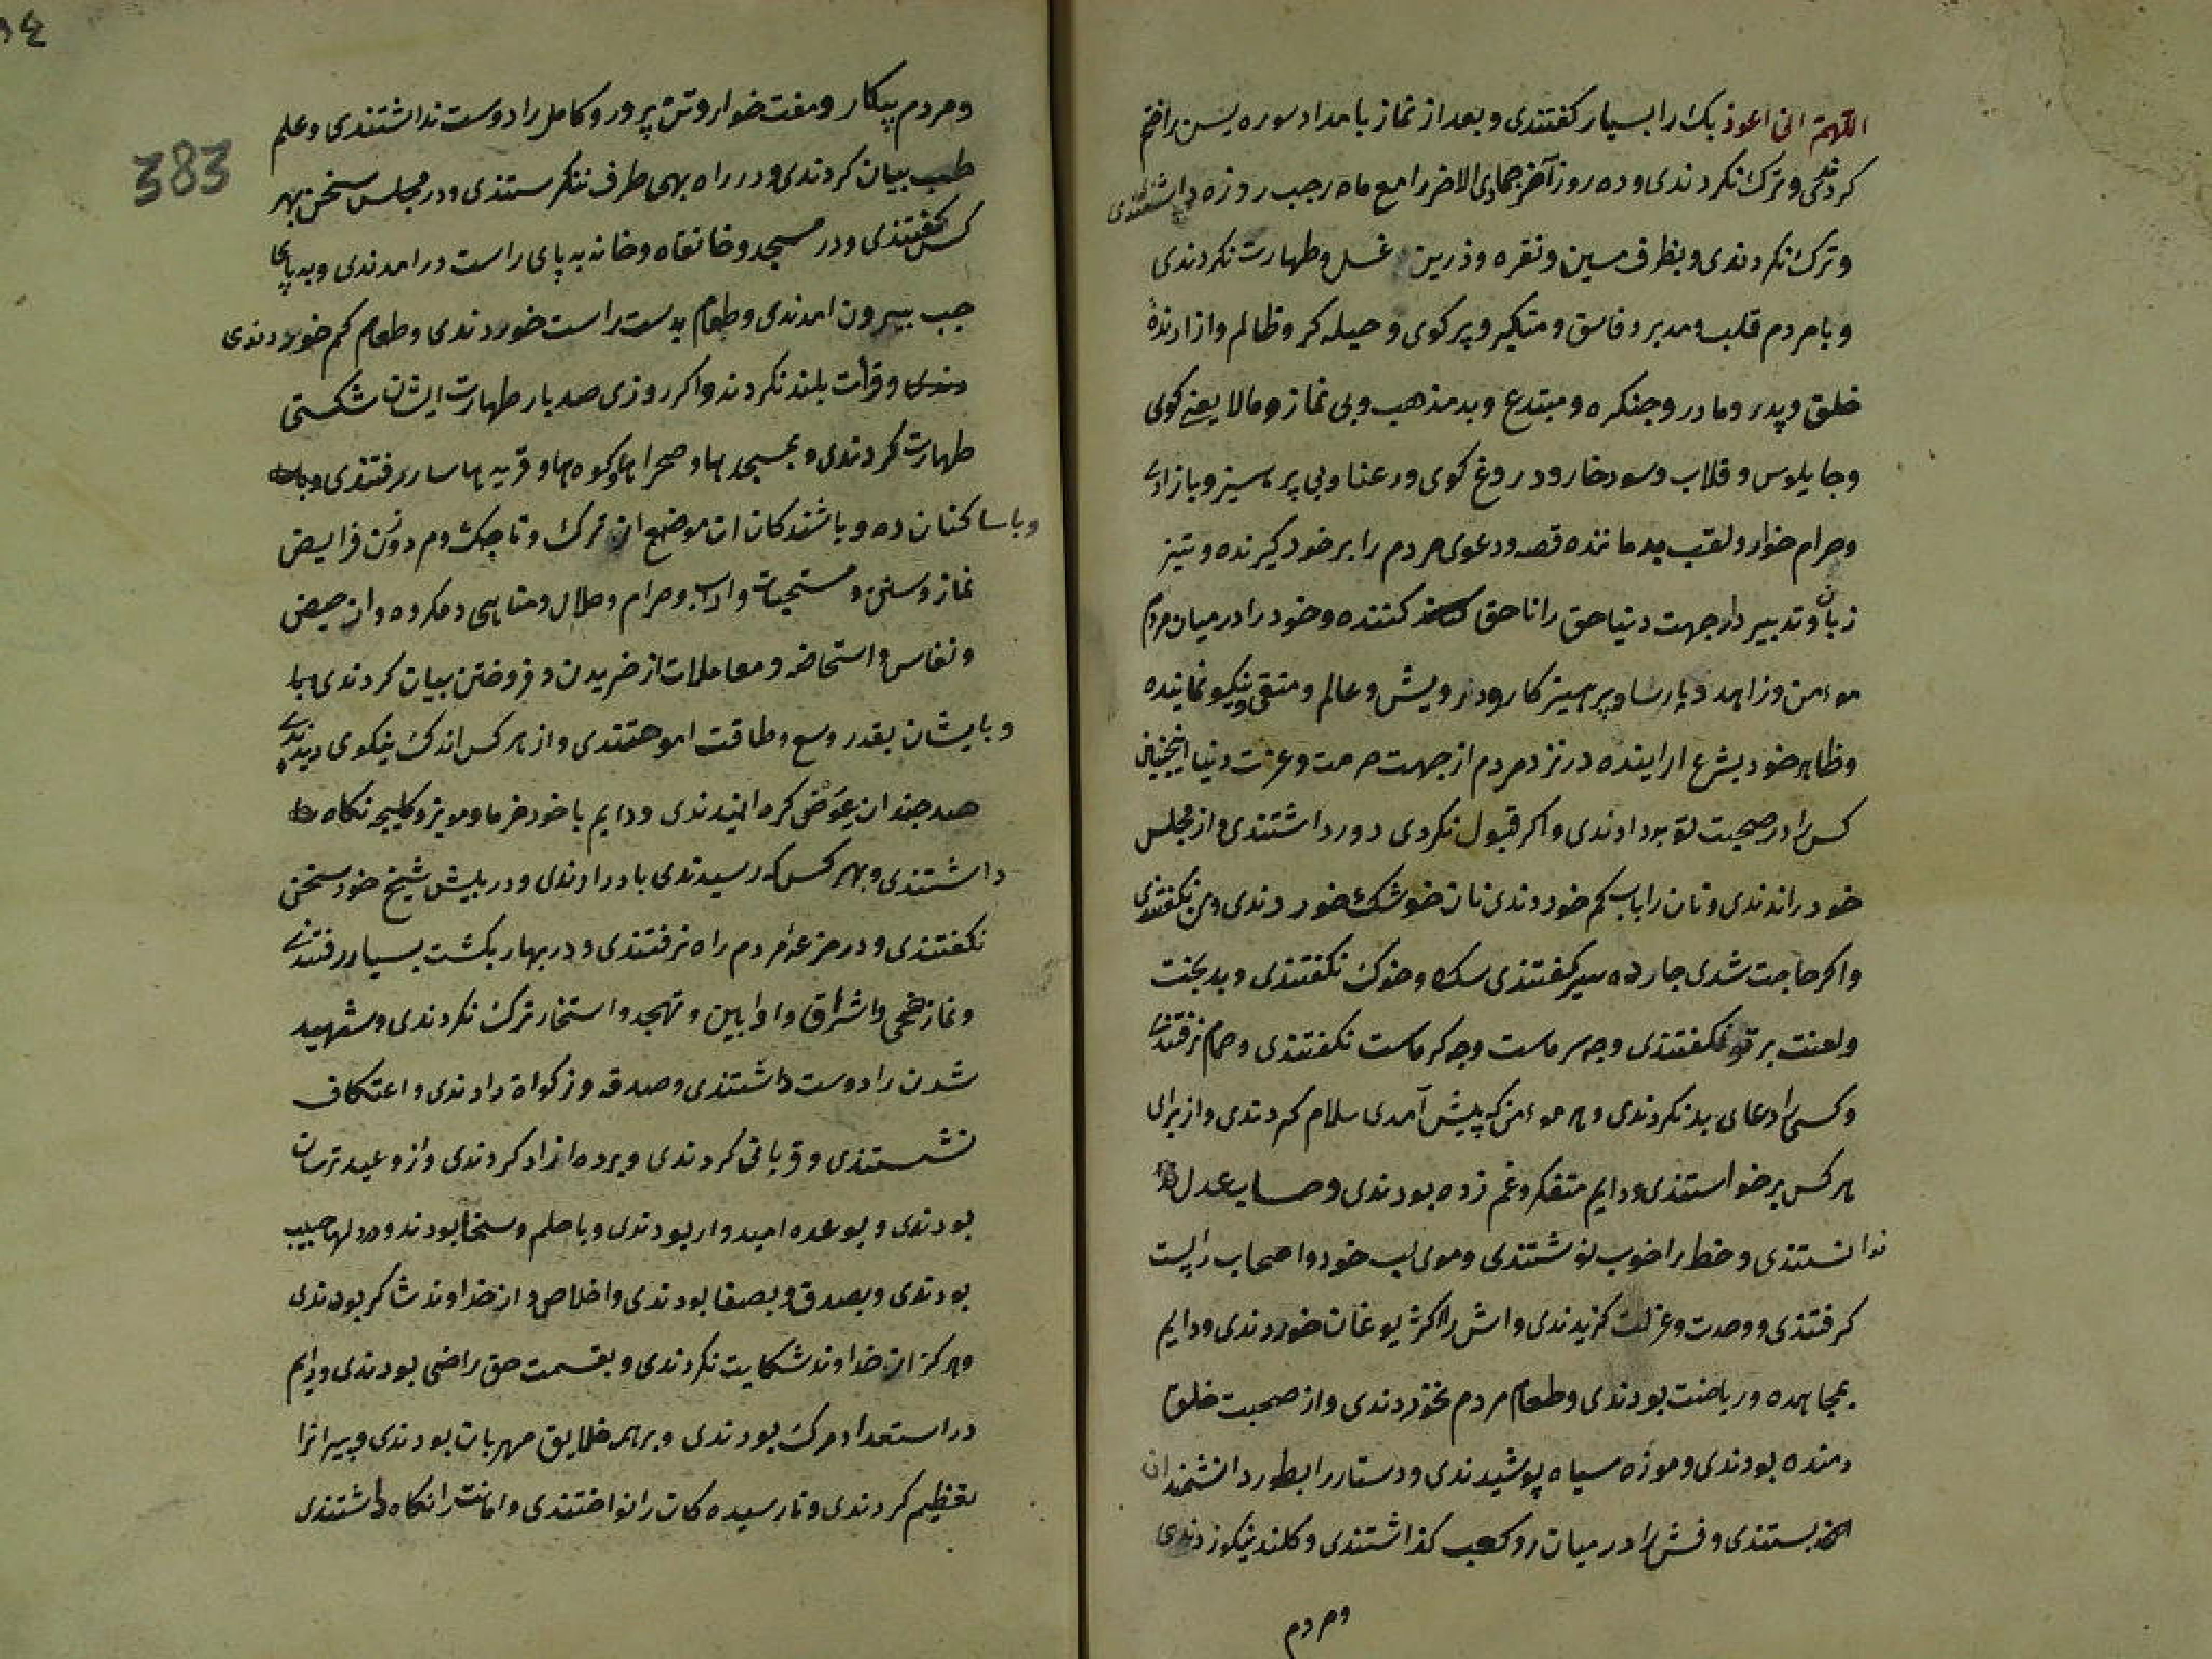 اللهم انی اعوذ بک را بسیار کفتندی و بعد از نماز بامداد سوره یسن را ختم
کردندی و ترک نکردندی و ده روز آخر جمادی الاخر را مع ماه رجب روزه داشتندی
و ترک نکردندی و بظرف مسین و نقره و زرین غسل و طهارت نکردندی
و با مردم قلب و مدبر و فاسق و متکبر و پر کوی و حیله کر و ظالم و ازار دهنده
خلق و پدر و مادر و جنکره و مبتدع و بد مذهب و بی نماز و مالا یعنی کوی
و جابلوس و قلاب و سود خار و دروغ کوی و رعنا و بی پرهیز و بازاری
و حرام خوار و لقب بد ماننده قصه و دعوی مردم را بر خود کیرنده و تیز
زبان و تدبیر دار جهت دنیا حق را ناحق کننده و خود را در میان مردم
موءمن و زاهد و پارسا و پرهیز کار و درویش و عالم و متقی و نیکو نماینده
و ظاهر خود بشرع اراینده در نزد مردم از جهت حرمت و عزت دنیا اینجنین
کس را در صحبت توبه دادندی و اکر قبول نکردی دور داشتندی و از مجلس
خود راندندی و نان را باب کم خوردندی نان خوشک خوردندی و من نکفتندی
و اکر حاجت شدی جارده سیر کفتندی سک و خوک نکفتندی و بدبخت
و لعنت بر تو نکفتندی و جه سرماست و جه کرماست نکفتندی و حمام نرفتندی
و کسی را دعای بد نکردندی و هر موءمن که پیش آمدی سلام کردندی و از برای
هر کس بر خواستندی و دایم متفکر و غم زده بودندی و حساب عدل
ندانستندی و خط را خوب نوشتندی و موی لب خود و اصحاب را پست
کرفتندی و وحدت و عزلت کزیدندی و اش را اکثر یوغان خوردندی و دایم
بمجاهده و ریاضت بودندی و طعام مردم نخوردندی و از صحبت خلق
رمنده بودندی و موزه سیاه پوشیدندی و دستار را بطور دانشمندان
بستندی و فش را در میان دو کعب کذاشتندی و کلند نیکو زدندی
و مردم
383
و مردم بیکار و مفت خوار و تن پرور و کاهل را دوست نداشتندی و علم
طب بیان کردندی و در راه بهی طرف ننکرستندی و در مجلس سخن بهر
کس کفتندی و در مسجد و خانقاه و خانه به پای راست در امدندی و به پای
جب بیرون امدندی و طعام بدست راست خوردندی و طعام کم خوردندی
و قرات بلند نکردند و اکر روزی صد بار طهارت ایشان شکستی
طهارت کردندی و بمسجدها و صحراها و کوهها و قریه ها سار رفتندی
و با ساکنان ده و باشندکان ان موضع از ترک و تاجک و مردم دون فرایض
نماز و سنن و مستحبات و اداب و حرام و حلال و مناهی و مکروه و از حیض
و نفاس و استحاضه و معاملات از خریدن و فروختن بیان کردندی
و بایشان بقدر وسع و طاقت اموختندی و از هر کس اندک نیکوی دیدندی
صد جندان عوض کردانیدندی و دایم با خود خرما و مویز و کلیجه نکاه
داشتندی و بهر کس که رسیدندی باو دادندی و در پیش شیخ خود سخن
نکفتندی و در مزرعه مردم راه نرفتندی و در بهار بکشت بسیار رفتندی
و نماز ضحی و اشراق و اوابین و تهجد و استخار ترک نکردندی و شهید
شدن را دوست داشتندی و صدقه و زکواة دادندی و اعتکاف
نشستندی و قربانی کردندی و برده ازاد کردندی و از وعید ترسان
بودندی و بوعده امیدوار بودندی و با حلم و سخا بودند و در دلها حبیب
بودندی و بصدق و بصفا بودندی و اخلاص و از خداوند شاکر بودندی
و هرکز از خداوند شکایت نکردندی و بقسمت حق راضی بودندی و دایم
در استعداد مرک بودندی و بر همه خلایق مهربان بودندی و پیرانرا
تعظیم کردندی و نارسیده کان را نواختندی و امانت را نکاه داشتندی